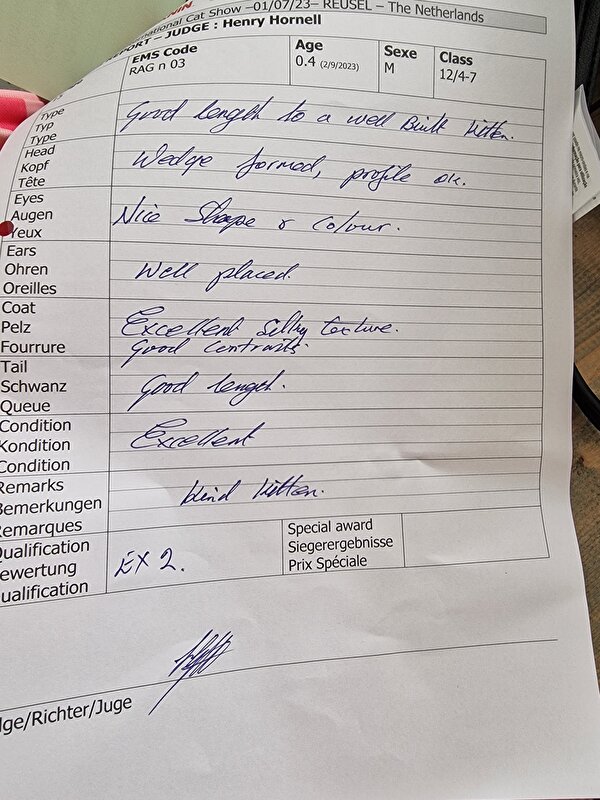 NIN.
national Cat Show –01/07/23– REUSEL – The Netherlands
PORT – JUDGE : Henry Hornell
EMS Code
RAG n 03
Age
0.4 (2/9/2023)
Sexe
M
Class
12/4-7
Type
Typ
Type
Good length to a well Built kitten.
Head
Kopf
Tête
Wedge formed, profile ok.
Eyes
Augen
Yeux
Nice Shape & Colour.
Ears
Ohren
Oreilles
Well placed.
Coat
Pelz
Fourrure
Excellent Silky texture.
Good Contrasts.
Tail
Schwanz
Queue
Good length.
Condition
Kondition
Condition
Excellent
Remarks
Bemerkungen
Remarques
kind kitten.
Qualification
Bewertung
Qualification
EX 2.
Special award
Siegerergebnisse
Prix Spéciale
dge/Richter/Juge